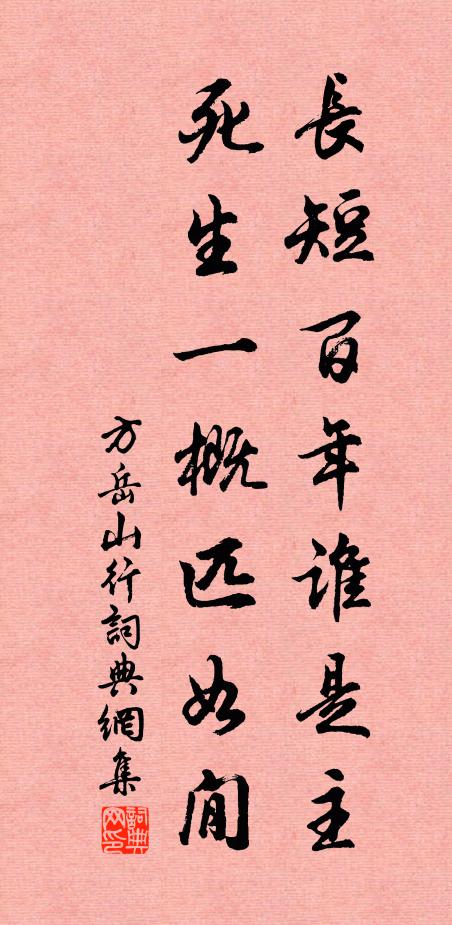 長短百年誰是主
死生一概匹如閒
方岳山行詞典網集
詞典网印